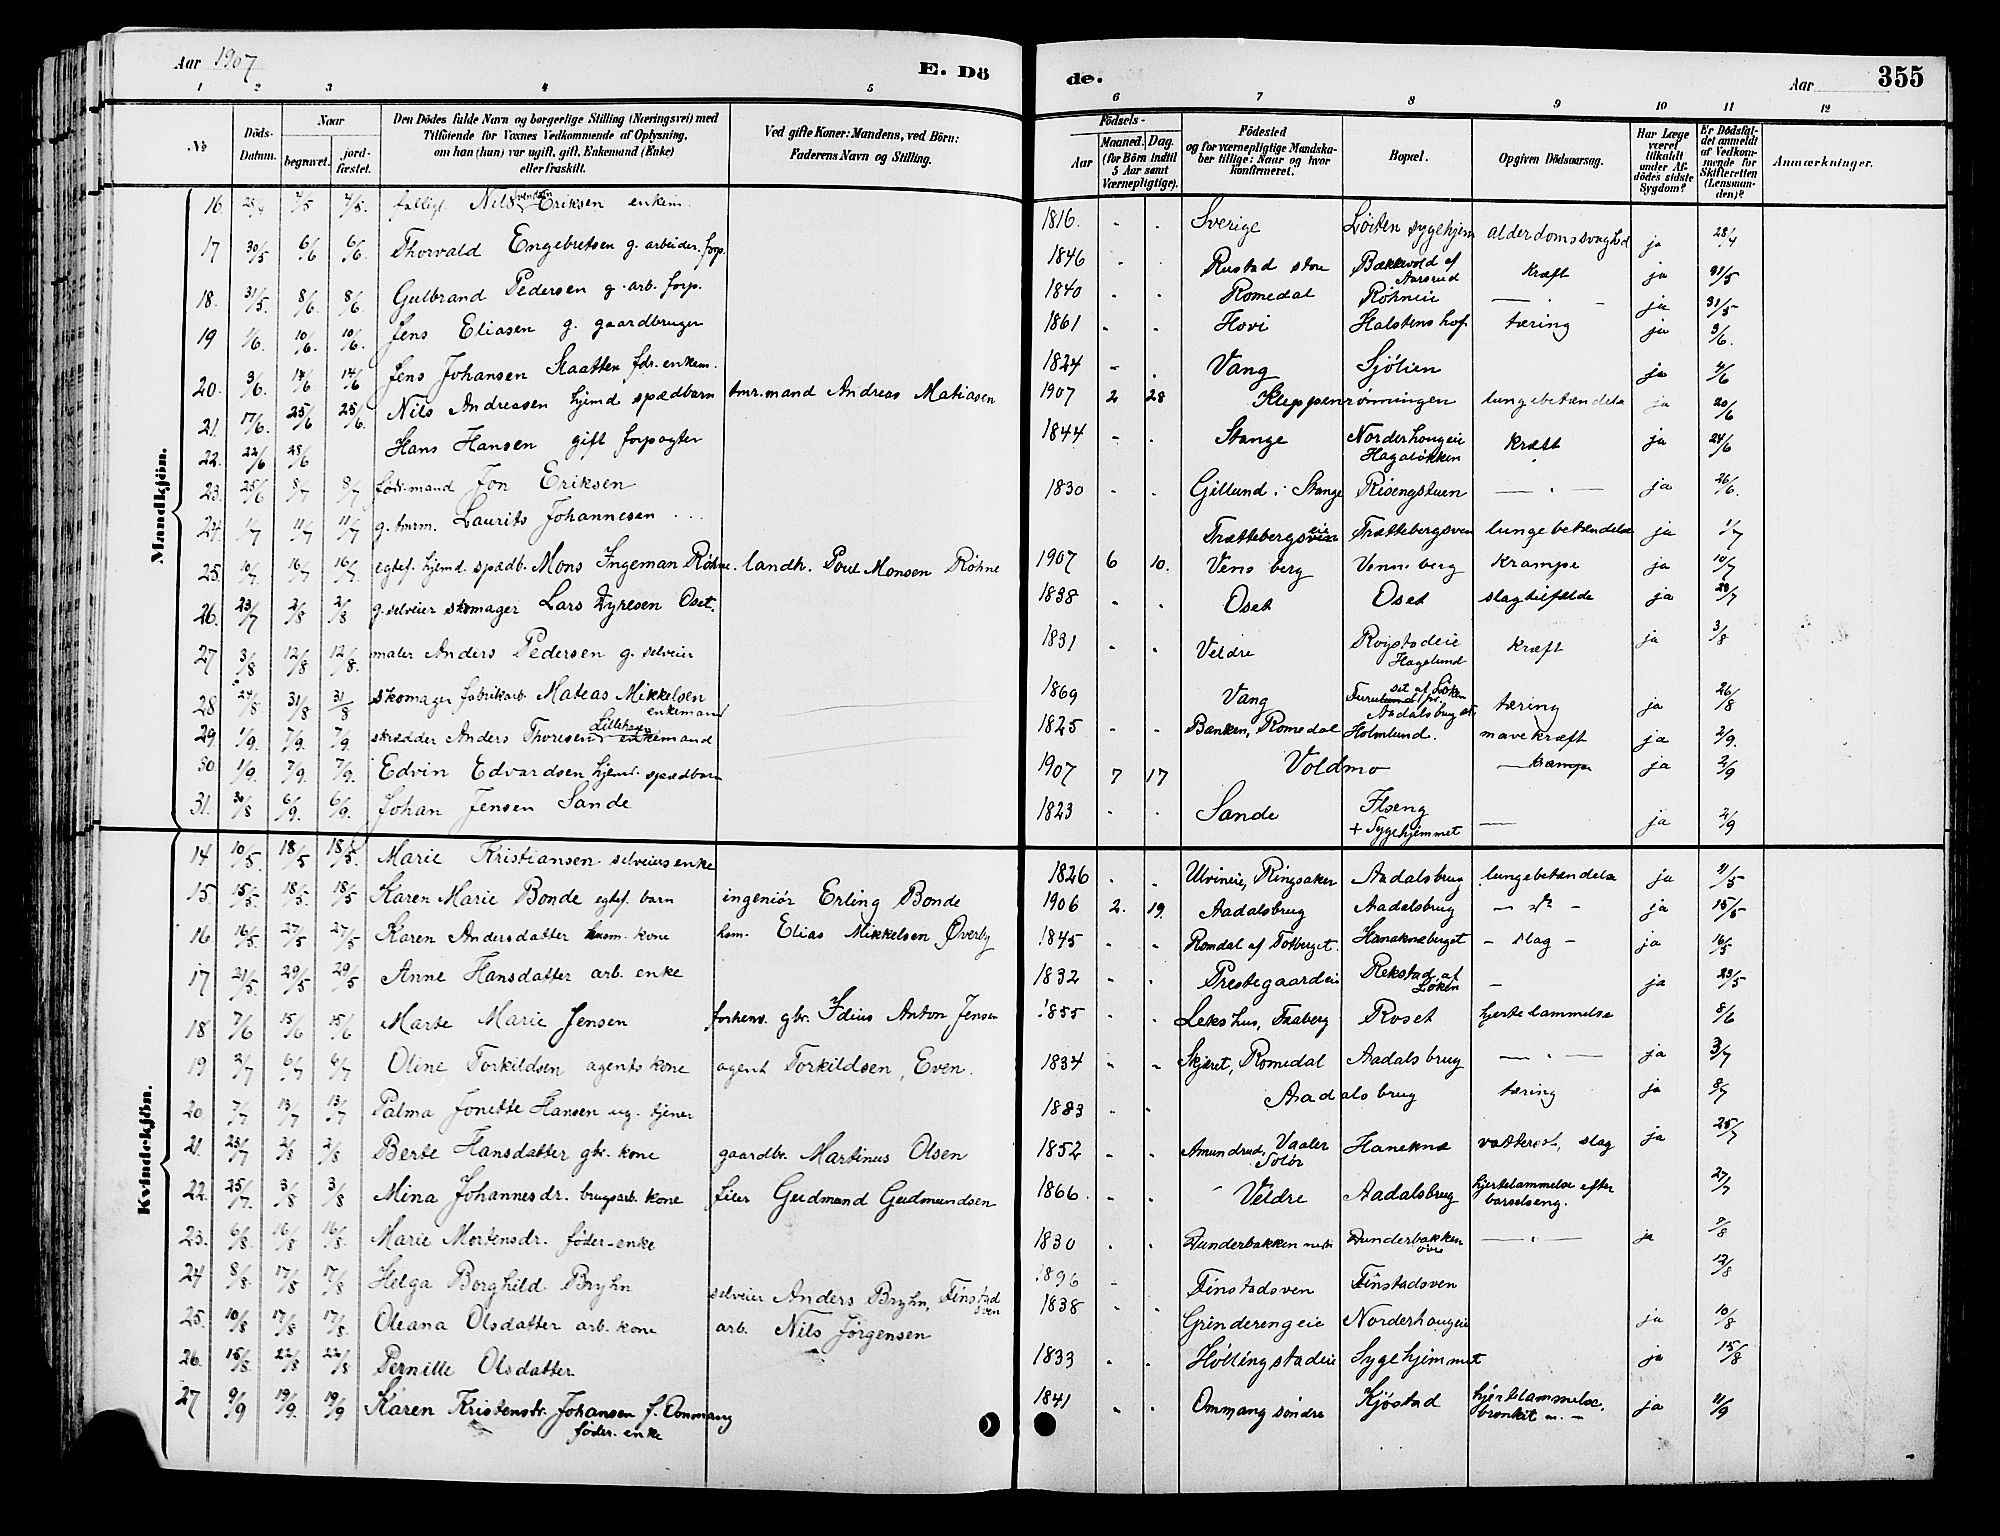 Aar 1907
E. Dö de.
Aar 355
1 2 3 4 5 6 7 8 9 10 11 12
No
Döds-Datum.
Naar
begravet.
jord-fæstet.
Den Dödes fulde Navn og borgerlige Stilling (Næringsvei) med Tilföiende for Voxnes Vedkommende af Oplysning, om han (hun) var ugift, gift, Enkemand (Enke) eller fraskilt.
Ved gifte Koner: Mandens, ved Börn: Faderens Navn og Stilling.
Födsels-
Aar
Maaned. Dag.
(for Börn indtil 5 Aar samt Værnepligtige).
Födested og for værnepligtige Mandskaber tillige: Naar og hvor konfirmeret.
Bopæl.
Opgiven Dödsaarsag.
Har Læge været tilkaldt under Afdödes sidste Sygdom?
Er Dödsfaldet anmeldt af Vedkommende for Skifteretten (Lensmanden)?
Anmærkninger.
Mandkjön.
16 4/5 4/5. fattigl. Nils Svendsen Eriksen enkem. 1816. Sverige Löiten sygehjem alderdomssvaghed ja 28/4
17 30/5 6/6 6/6. Thorvald Engebretsen g. arbeider. forp. 1846 Rustad stou Bækkevold af Aarsrud kræft ja 31/5
18. 31/5. 8/6 8/6 Gulbrand Pedersen g. arb. forp. 1840 Romedal Röhneie — " — ja 31/5
19 1/6. 10/6. 10/6. Jens Eliasen g. gaardbruger 1861 Hovi Halstenshof tæring ja 3/6.
20. 3/6. 14/6 14/6 Jens Johansen Slaatten fdr. enkem. 1824 Vang Sjölien ja 4/6
21. 17/6. 25/6 25/6. Nils Andreasen hjemd spædbarn tmr.mand Andreas Matiasen 1907 2 28 Kleppenrönningen lungebetændelse ja 20/6
22. 22/6 28/6 Hans Hansen gift forpagter 1844 Stange Norderhougeie Hagalökken kræft ja 24/6
23. 25/6 8/7 8/7 föd.mand Jon Eriksen 1830 Gillund i Stange Risengstuen — " — ja 26/6.
24. 1/7 11/7 11/7 g. tmrm. Laurits Johannesen Trættebergseie Trættebergsven lungebetændelse ja 1/7
25. 10/7 16/7 16/7 egtef. hjemd. spædb. Mons Ingeman Röhne. landh. Poul Monsen Röhne 1907 6 10. Vens berg Venneberg Krampe ja 10/7
26. 23/7 2/8 2/8 g. selveier skomager Lars Dyresen Oset. 1838 Oset Oset slagtilfælde ja
27 3/8 12/8 12/8. maler Anders Pedersen g. selveier 1831 Veldre Rogstadeie Hagelund kræft ja 3/8
28 24/8 31/8 31/8 skomager fabrikarb. Mateas Mikkelsen enkemand 1869 Vang Furulund pr. Aadalsbrug st. set af Löken tæring ja 26/8
29. 1/9. 7/9. 7/9. skrædder Anders Thoresen Lillehagen enkemand 1825 Banken, Romedal Holmlund. mavekræft ja 2/9.
30. 1/9. 7/9. 7/9. Edvin Edvardsen hjemd. spædbarn 1907 7 17 Voldmo — krampe ja 2/9
31. 30/8 6/9. 6/9. Johan Jensen Sande 1823 Sande Ilseng + Sygehjemmet — ja 2/9
Kvindekjön.
14 10/5. 18/5 18/5. Marie Kristiansen selveiers enke 1826 Ulvineie, Ringsaker Aadalsbrug lungebetændelse ja 11/5
15. 15/5. 18/5. 18/5 Karen Marie Bonde egtef. barn ingeniör Erling Bonde 1906 2. 19. Aadalsbrug Aadalsbrug — " — ja 15/5
16 16/5. 27/5 27/5 Karen Andersdatter hsm. kone hsm. Elias Mikkelsen Øverby 1845 Romdal af Totberget. Hanaknæberget — slag — ja 16/5
17 21/5. 29/5 29/5 Anne Hansdatter arb. enke 1832 Prestegaardeie Rekstad af Löken — ja 23/5
18 7/6 15/6 15/6 Marte Marie Jensen forhenv. gbr. Idius Anton Jensen 1855 Lekshus, Faaberg Roset hjertelammelse 8/6
19 2/7 6/7 6/7 Oline Torkildsen agents kone agent Torkildsen, Even. 1834 Skjæret, Romedal Aadalsbrug — " — ja 3/7
20 7/7 13/7 13/7 Palma Jonette Hansen ug. tjener 1883 Aadalsbrug tæring ja 8/7
21. 23/7 2/8 2/8 Berte Hansdatter gbr. kone gaardbr. Martinus Olsen 1852 Amundrud, Vaaler Solör Haneknæ vattersot, slag ja 25/7
22. 25/7. 3/8 3/8 Mina Johannesdr. brugsarb. kone filer Gudmund Gudmundsen 1866. Veldre Aadalsbrug hjertelammelse efter barselseng. 27/7
23. 6/8. 16/8 16/8. Marie Mortensdr. föder-enke 1830 Dunderbakken nedre Dunderbakken övre — " — ja 7/8
24 8/8. 17/8 17/8 Helga Borghild Bryhn selveier Anders Bryhn, Finstadsven 1896 Finstadsven Finstadsven 12/8
25. 10/8 17/8 17/8. Oleana Olsdatter arb. kone arb. Nils Jörgensen 1838 Grinderengeie Norderhougeie ja 10/8
26. 15/8. 22/8 22/8 Pernille Olsdatter 1833 Höllingstadeie Sygehjemmet ja 15/8
27 9/9 19/9. 19/9 Karen Kristensdr. Johansen f. Ommang föder. enke 1841 Ommang söndre Kjöstad hjertelammelse, bronkit m. — ja 11/9